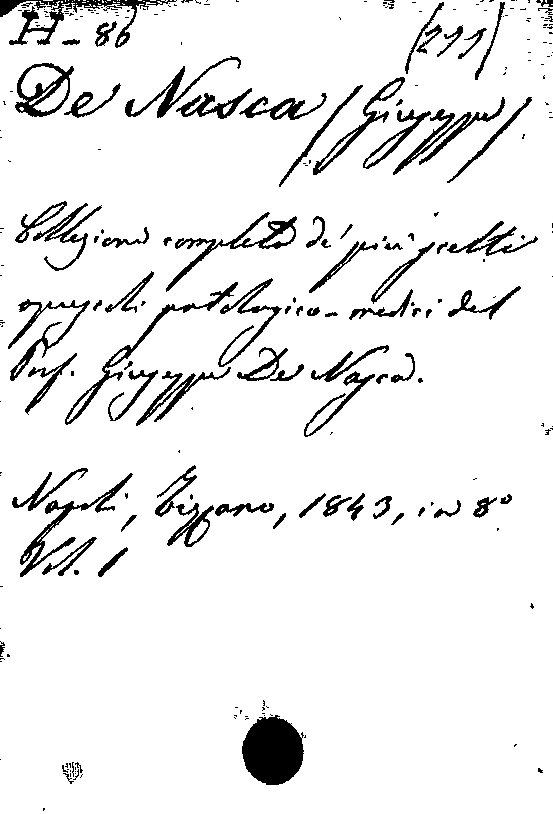 H-86 (211)
De Nasca / Giuseppe /
Collezione completa de' più scelti
opuscoli patologico-medici del
Prof. Giuseppe De Nasca.
Napoli, Tizzano, 1843, in 8°
Vol. 1